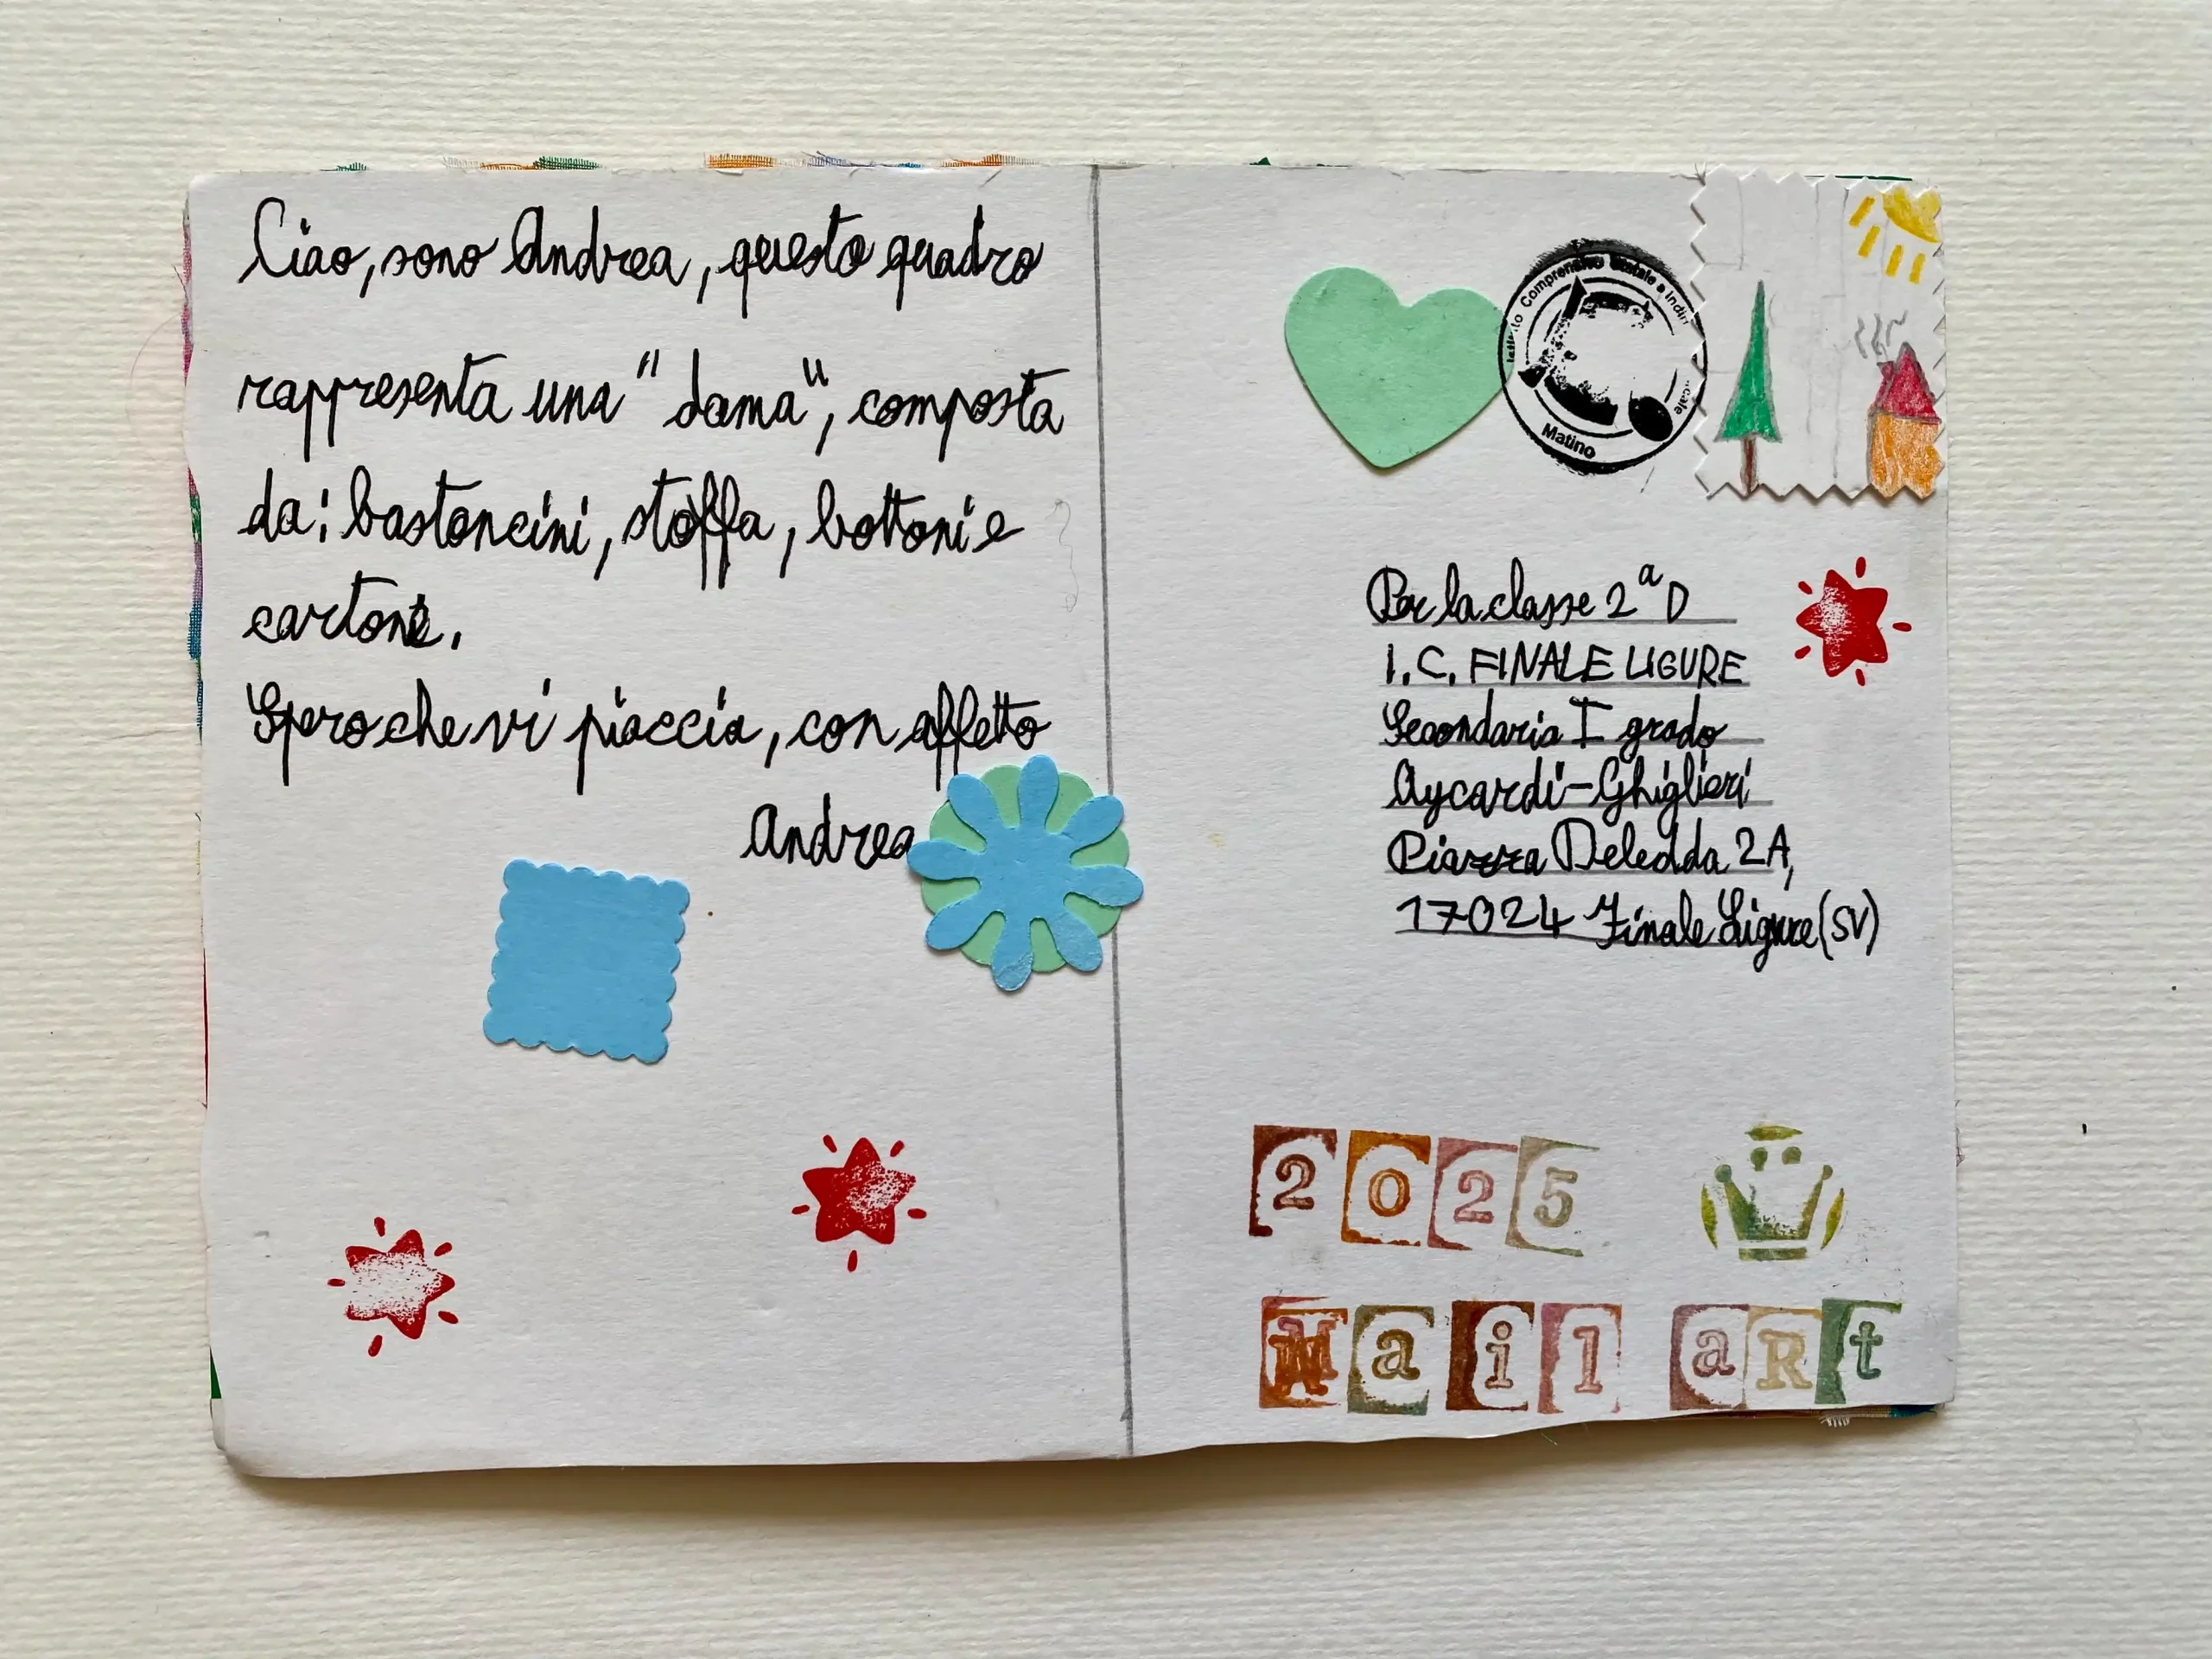 Ciao, sono Andrea, questo quadro
rappresenta una "dama", composta
da: bastoncini, stoffa, bottoni e
cartone.
Spero che vi piaccia, con affetto
Andrea
Comprensivo Statale a Indir
Matino
Per la classe 2ª D
I.C. FINALE LIGURE
Secondaria I grado
Aycardi-Ghiglieri
Piazza Deledda 2A,
17024 Finale Ligure (SV)
2025
Mail aRt